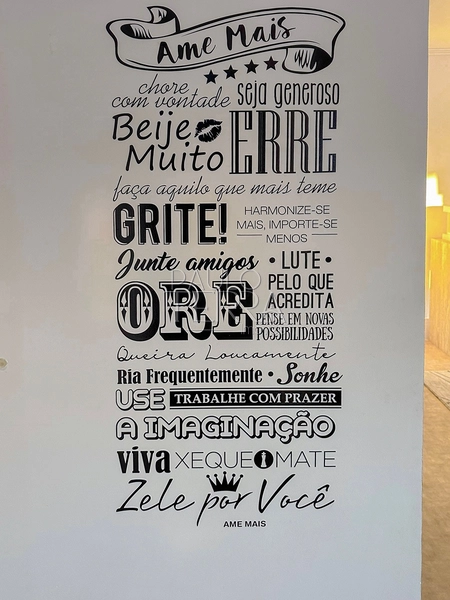 Ame Mais
chore
com vontade
seja generoso
Beije
Muito
ERRE
faça aquilo que mais teme
GRITE!
HARMONIZE-SE
MAIS, IMPORTE-SE
MENOS
Junte amigos
• LUTE •
PELO QUE
ACREDITA
ORE
PENSE EM NOVAS
POSSIBILIDADES
Queira Loucamente
Ria Frequentemente • Sonhe
USE TRABALHE COM PRAZER
A IMAGINAÇÃO
viva XEQUE MATE
Zele por Você
AME MAIS